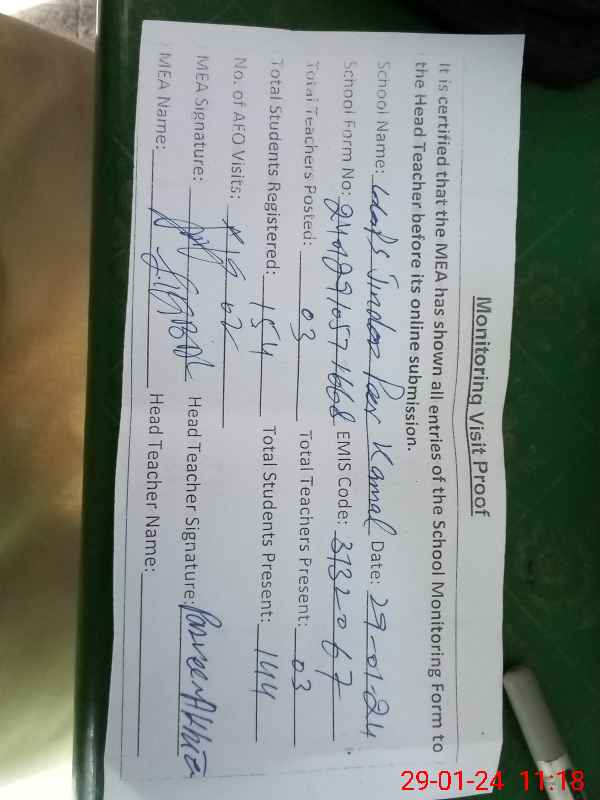 Monitoring Visit Proof
It is certified that the MEA has shown all entries of the School Monitoring Form to
the Head Teacher before its online submission.
School Name: Jindoo Peer Kamal Date: 29-01-24
School Form No: EMIS Code: 31320167
Total Teachers Posted: 03 Total Teachers Present: 03
Total Students Registered: 154 Total Students Present: 144
No. of AEO Visits: 02
MEA Signature: Head Teacher Signature: Parveen Akhtar
MEA Name: Head Teacher Name:
29-01-24 11:18